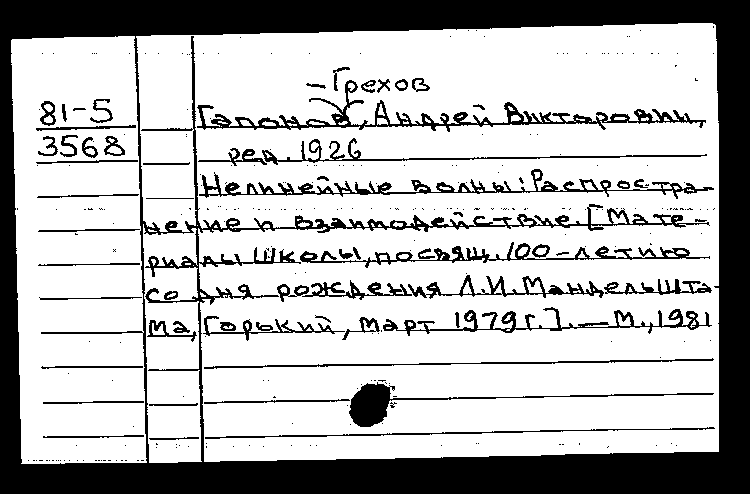 -Грехов
81-5 Гапонов, Андрей Викторович,
3568 ред. 1926
Нелинейные волны: Распростра-
нение и взаимодействие. [Мате-
риалы школы, посвящ. 100-летию
со дня рождения Л.И. Мандельшта-
ма, Горький, март 1979 г.]. — М., 1981